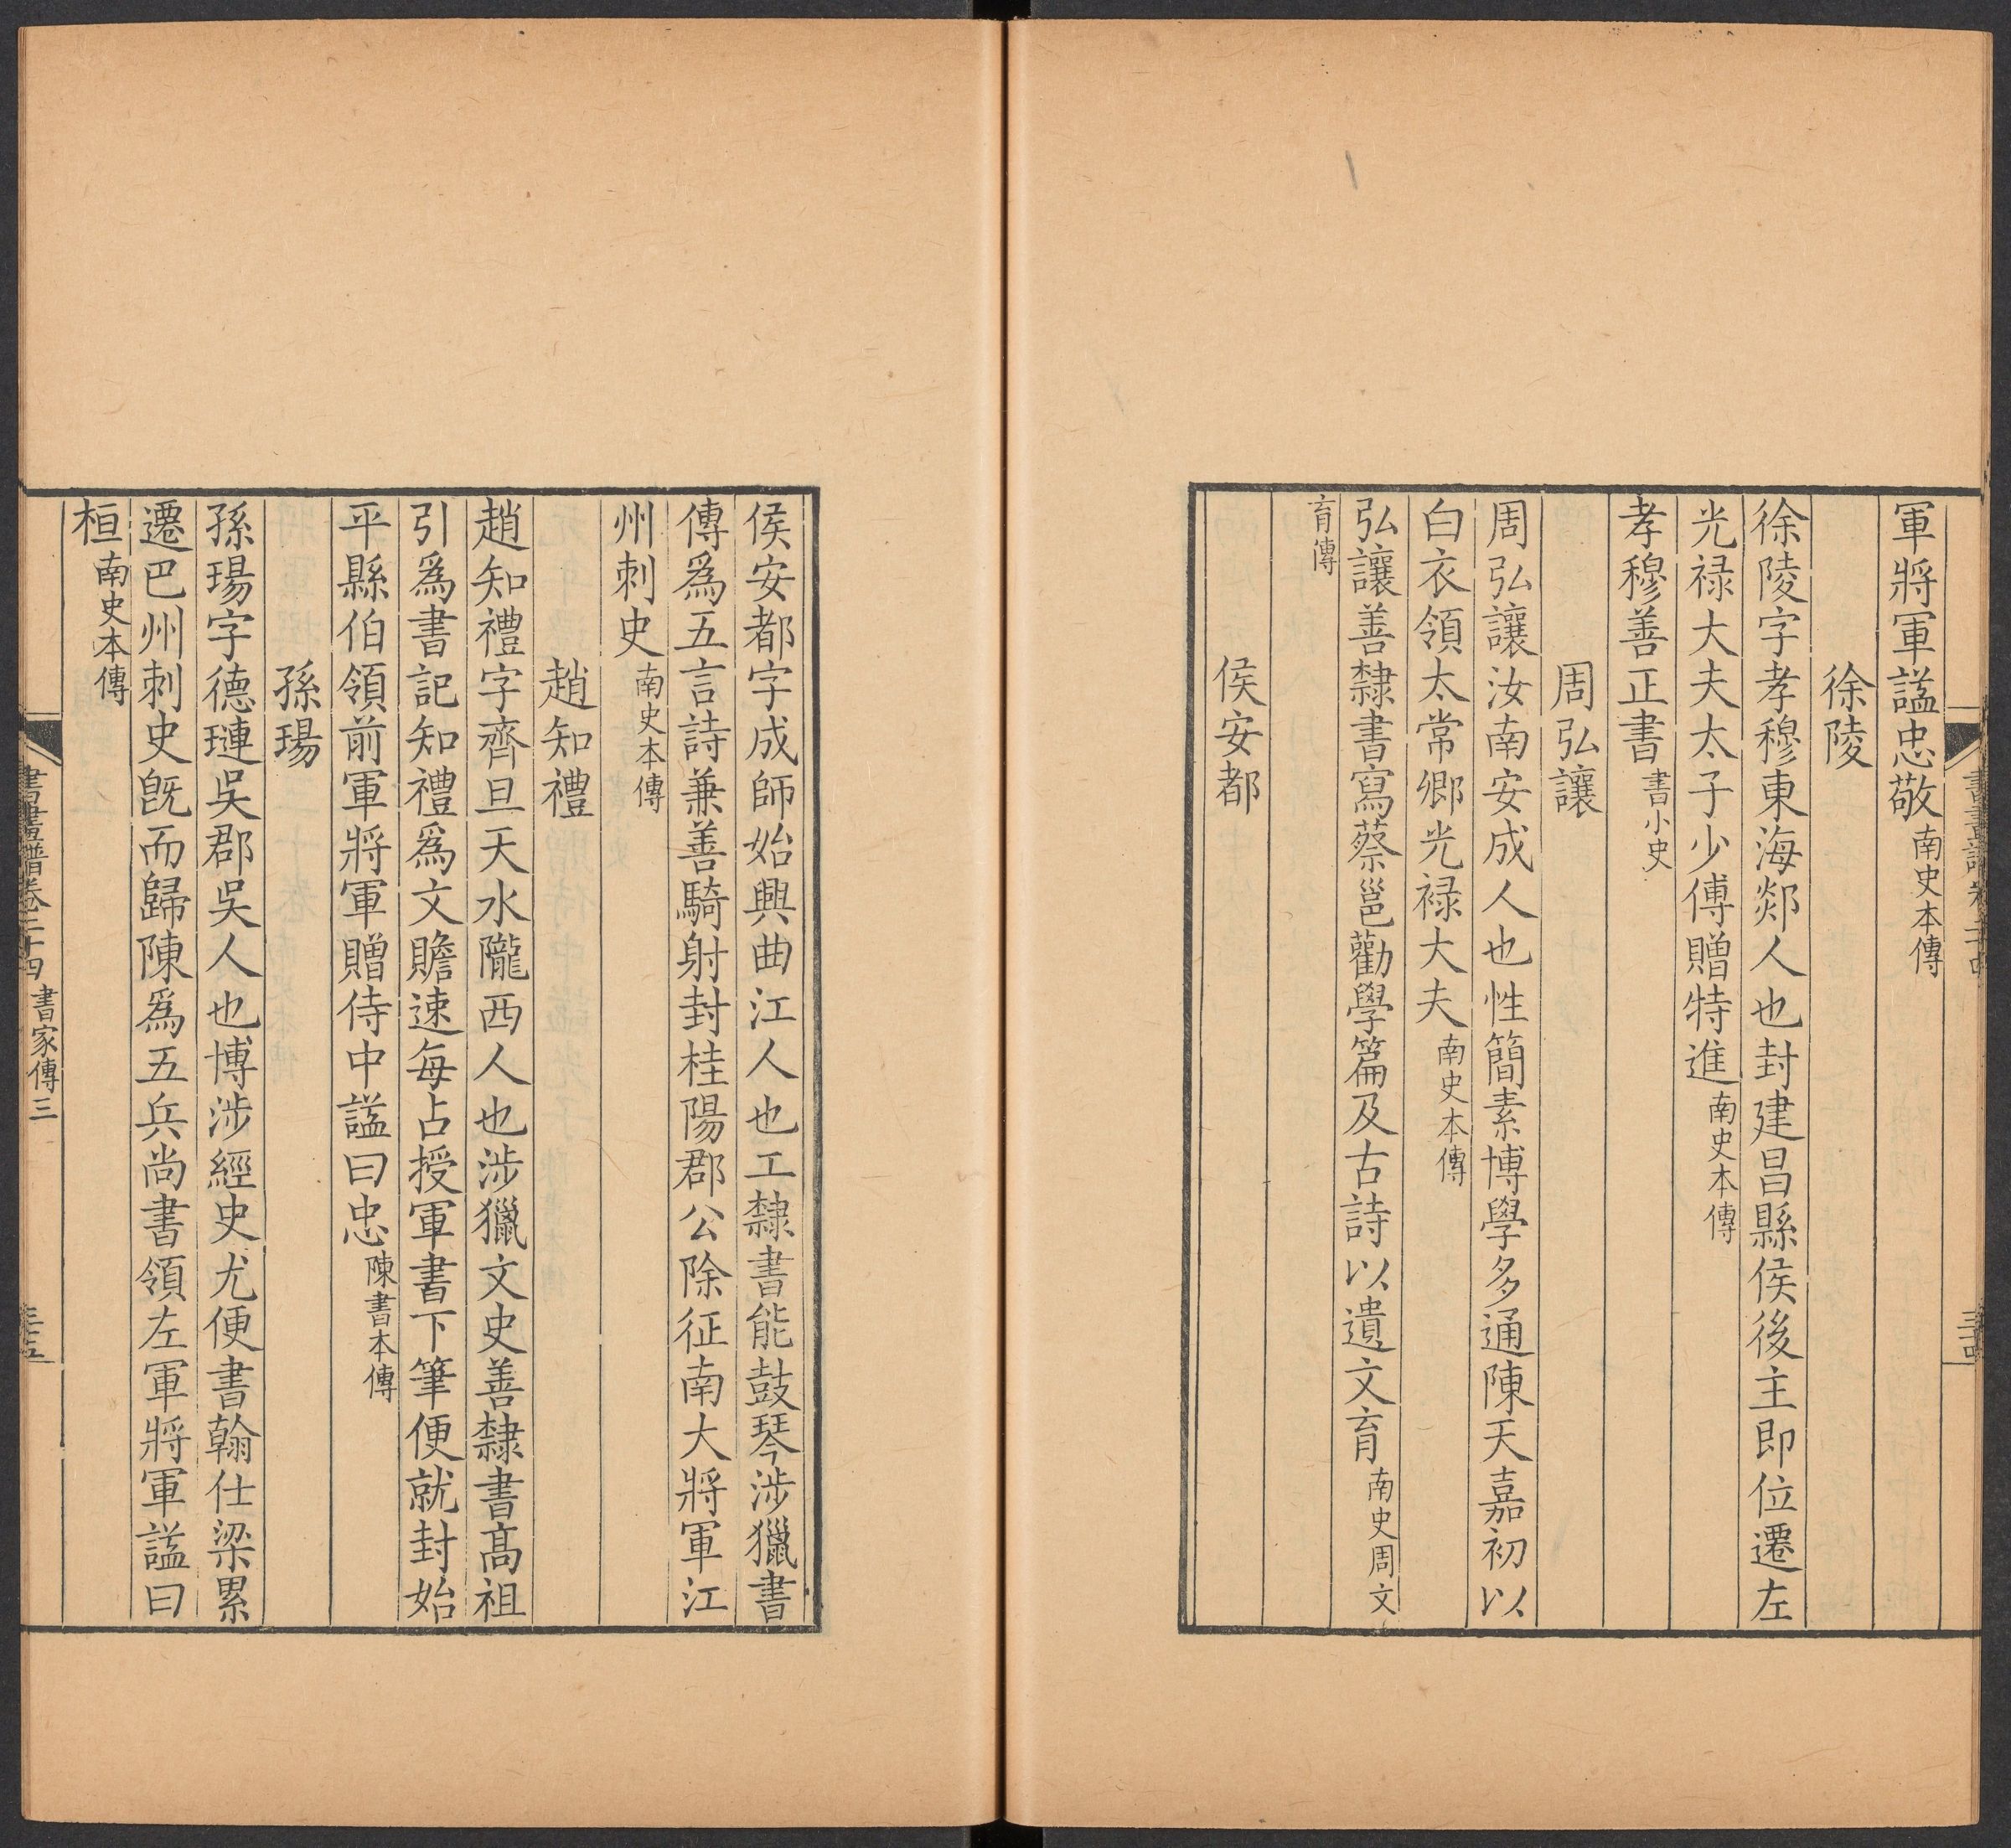 軍將軍諡忠敬南史本傳
徐陵
徐陵字孝穆東海郯人也封建昌縣侯後主即位遷左
光禄大夫太子少傅贈特進南史本傳
孝穆善正書書小史
周弘讓
周弘讓汝南安成人也性簡素博學多通陳天嘉初以
白衣領太常卿光禄大夫南史本傳
弘讓善隸書寫蔡邕勸學篇及古詩以遺文育南史周文
育傳
侯安都
侯安都字成師始興曲江人也工隸書能鼓琴涉獵書
傳爲五言詩兼善騎射封桂陽郡公除征南大將軍江
州刺史南史本傳
趙知禮
趙知禮字齊旦天水隴西人也涉獵文史善隸書高祖
引爲書記知禮爲文贍速每占授軍書下筆便就封始
平縣伯領前軍將軍贈侍中諡曰忠陳書本傳
孫瑒
孫瑒字德璉吳郡吳人也博涉經史尤便書翰仕梁累
遷巴州刺史旣而歸陳爲五兵尚書領左軍將軍諡曰
桓南史本傳
書畫譜卷二十四 書家傳三